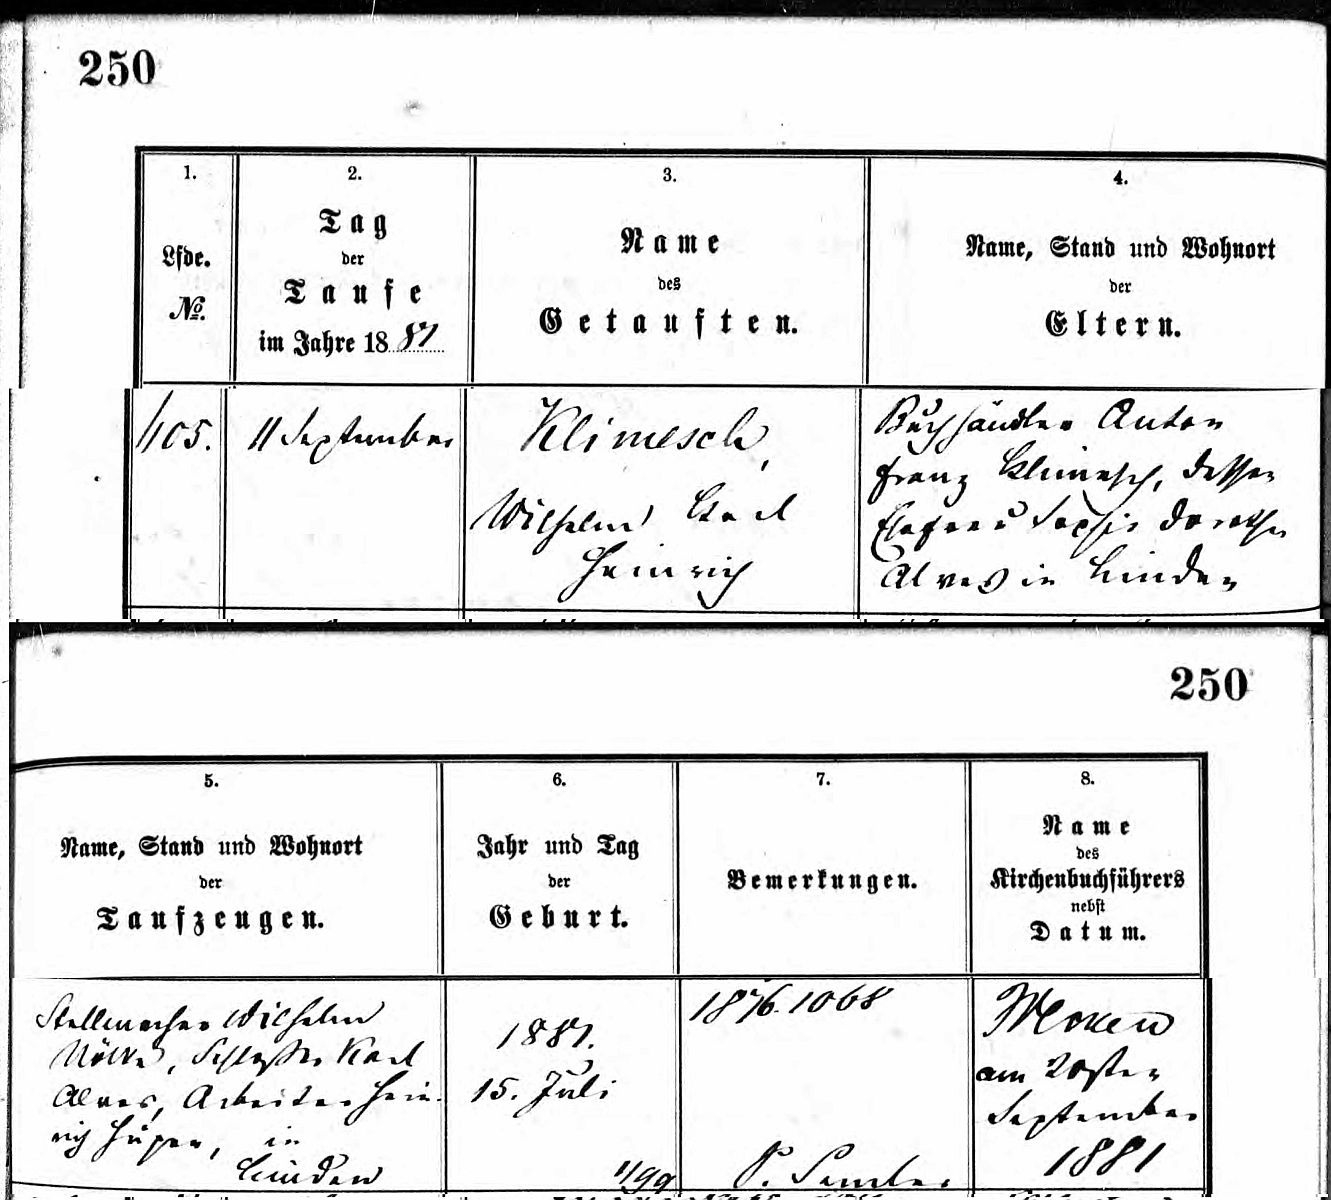 250
1.
Lfde.
№.
2.
Tag
der
Taufe
im Jahre 1881
3.
Name
des
Getauften.
4.
Name, Stand und Wohnort
der
Eltern.
1105.
11 September
Klimesch,
Wilhelm Carl
Heinrich
Buchhändler Anton
Franz Klimesch, dessen
Ehefrau Sophie Dorothe
Alves in Linden
250
5.
Name, Stand und Wohnort
der
Taufzeugen.
6.
Jahr und Tag
der
Geburt.
7.
Bemerkungen.
8.
Name
des
Kirchenbuchführers
nebst
Datum.
Stellmacher Wilhelm
Nölke, Schlosser Karl
Alves, Arbeiter Hein-
rich Hüper, in
Linden
1881.
15. Juli
1876. 1068
P.
am 20sten
September
1881